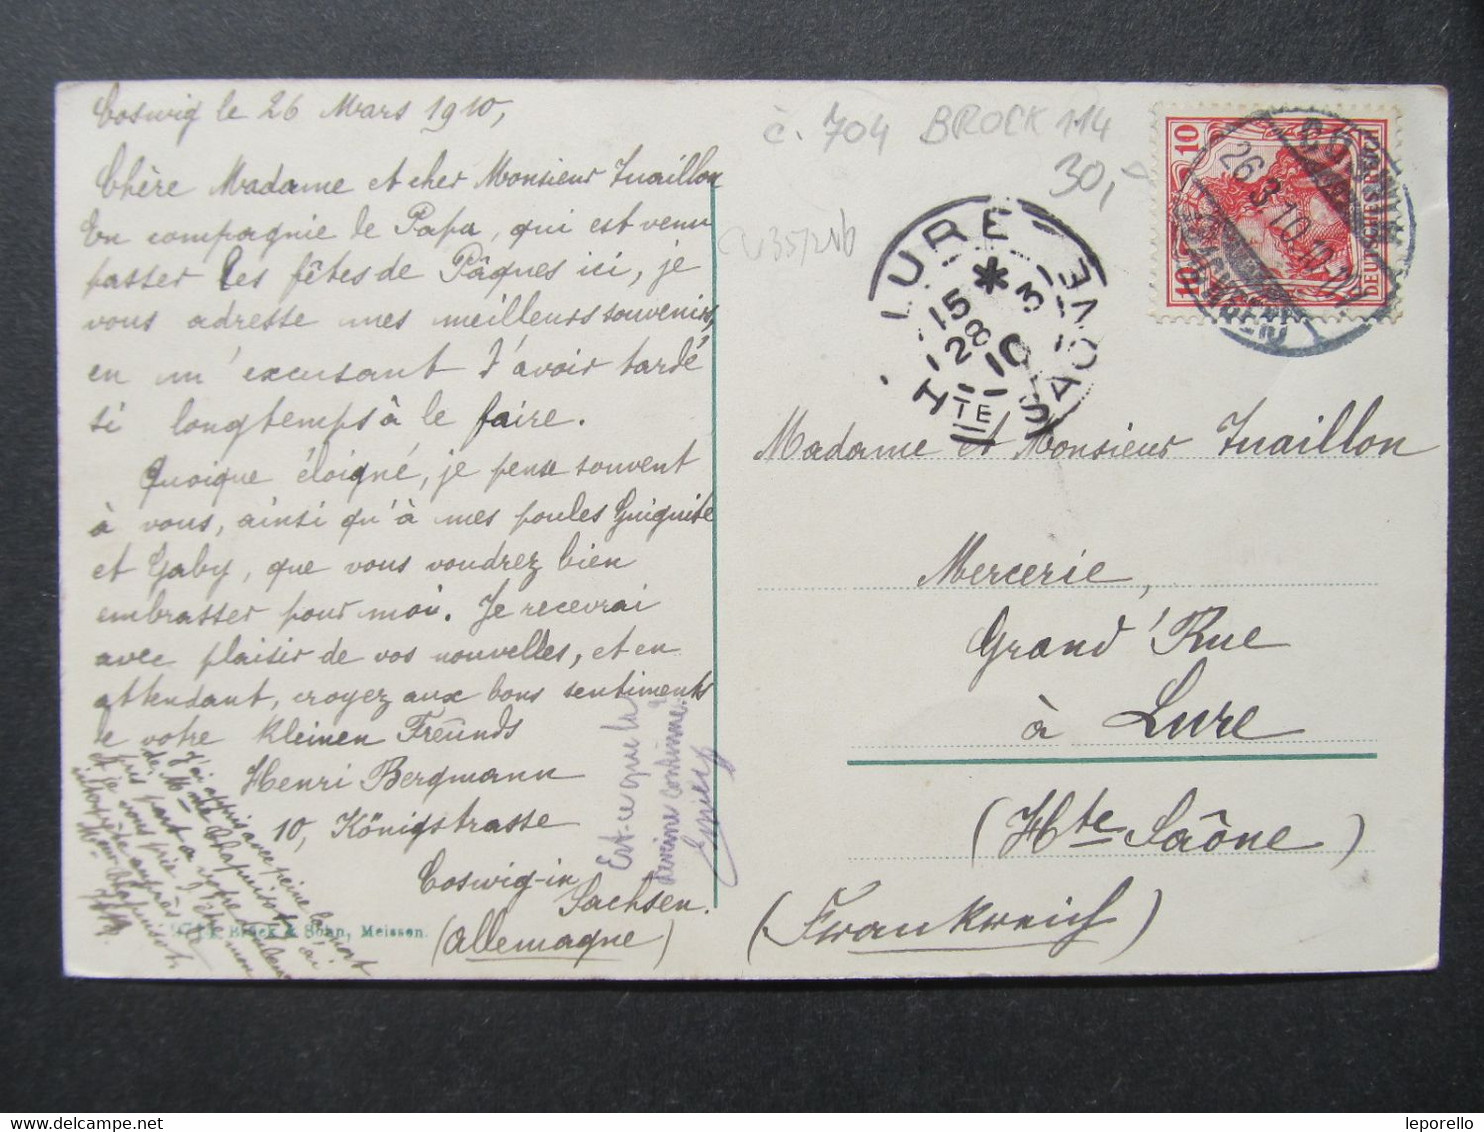 Coswig le 26 Mars 1910,
Chère Madame et cher Monsieur Tuaillon
En compagnie de Papa, qui est venu
passer les fêtes de Pâques ici, je
vous adresse mes meilleurs souvenirs,
en m'excusant d'avoir tardé
si longtemps à le faire.
Quoique éloigné, je pense souvent
à vous, ainsi qu'à mes poules Guiguite
et Gaby, que vous voudrez bien
embrasser pour moi. Je recevrai
avec plaisir de vos nouvelles, et en
attendant, croyez aux bons sentiments
de votre kleinen Freunds
Henri Bergmann
10, Königstrasse
Coswig-in
Sachsen.
(Allemagne)
J'ai appris avec peine la mort
de Mme Chapuisot, j'ai
pris part à votre douleur
et je vous prie d'être mon
interprète auprès de
Mr Chapuisot.
Est-ce que la
continue
Brück & Sohn, Meissen.
č. 704 BROCK 114
30,-
LURE
15 * 31
28
10
HTE SAÔNE
DEUTSCHES REICH
10 10
COSWIG
26.3.10.10-11
(SACHSEN)
Madame et Monsieur Tuaillon
Mercerie,
Grand'Rue
à Lure
(Hte Saône)
(Frankreich)
leporello